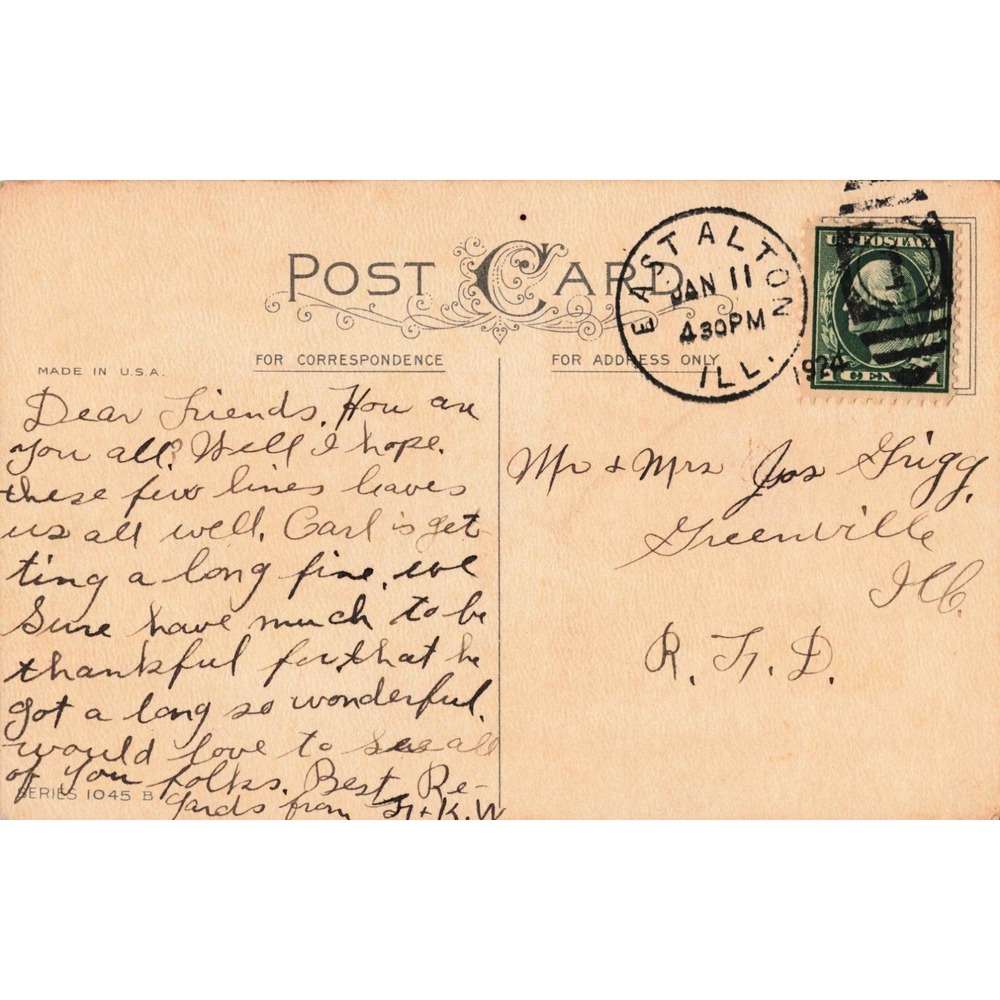 POST CARD
EAST ALTON
JAN 11
430PM
ILL.
1924
U.S. POSTAGE
1
CENT
MADE IN U.S.A.
FOR CORRESPONDENCE
FOR ADDRESS ONLY
Dear Friends. How are
you all? Well I hope.
these few lines leaves
us all well. Carl is get
ting a long fine. we
Sure have much to be
thankful for. that he
got a long so wonderful.
would love to see all
of you folks. Best Re-
gards from F. + K. W
SERIES 1045 B
Mr + Mrs Jos Grigg,
Greenville
Ill.
R. F. D.